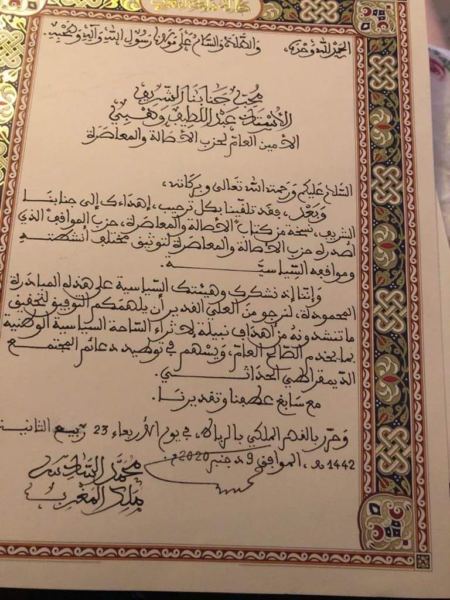 الحمد لله وحده، والصلاة والسلام على مولانا رسول الله وآله وصحبه.
محب جنابنا الشريف
الأستاذ عبد اللطيف وهبي
الأمين العام لحزب الأصالة والمعاصرة
السلام عليكم ورحمة الله تعالى وبركاته،
وبعد، فقد تلقينا بكل ترحيب، إهداءك إلى جنابنا
الشريف نسخة من كتاب "الأصالة والمعاصرة، حزب المواقف" الذي
أصدره حزب الأصالة والمعاصرة لتوثيق مختلف أنشطته
ومواقفه السياسية.
وإننا إذ نشكرك وهيئتك السياسية على هذه المبادرة
المحمودة، لنرجو من العلي القدير أن يلهمكم التوفيق لتحقيق
ما تنشدونه من أهداف نبيلة لإثراء الساحة السياسية الوطنية
بما يخدم الصالح العام، ويسهم في توطيد دعائم المجتمع
الديمقراطي الحداثي.
مع سابغ عطفنا وتقديرنا.
وحرر بالقصر الملكي بالرباط، في يوم الأربعاء 23 ربيع الثانية
1442 هـ، الموافق 9 دجنبر 2020 م.
محمد السادس
ملك المغرب